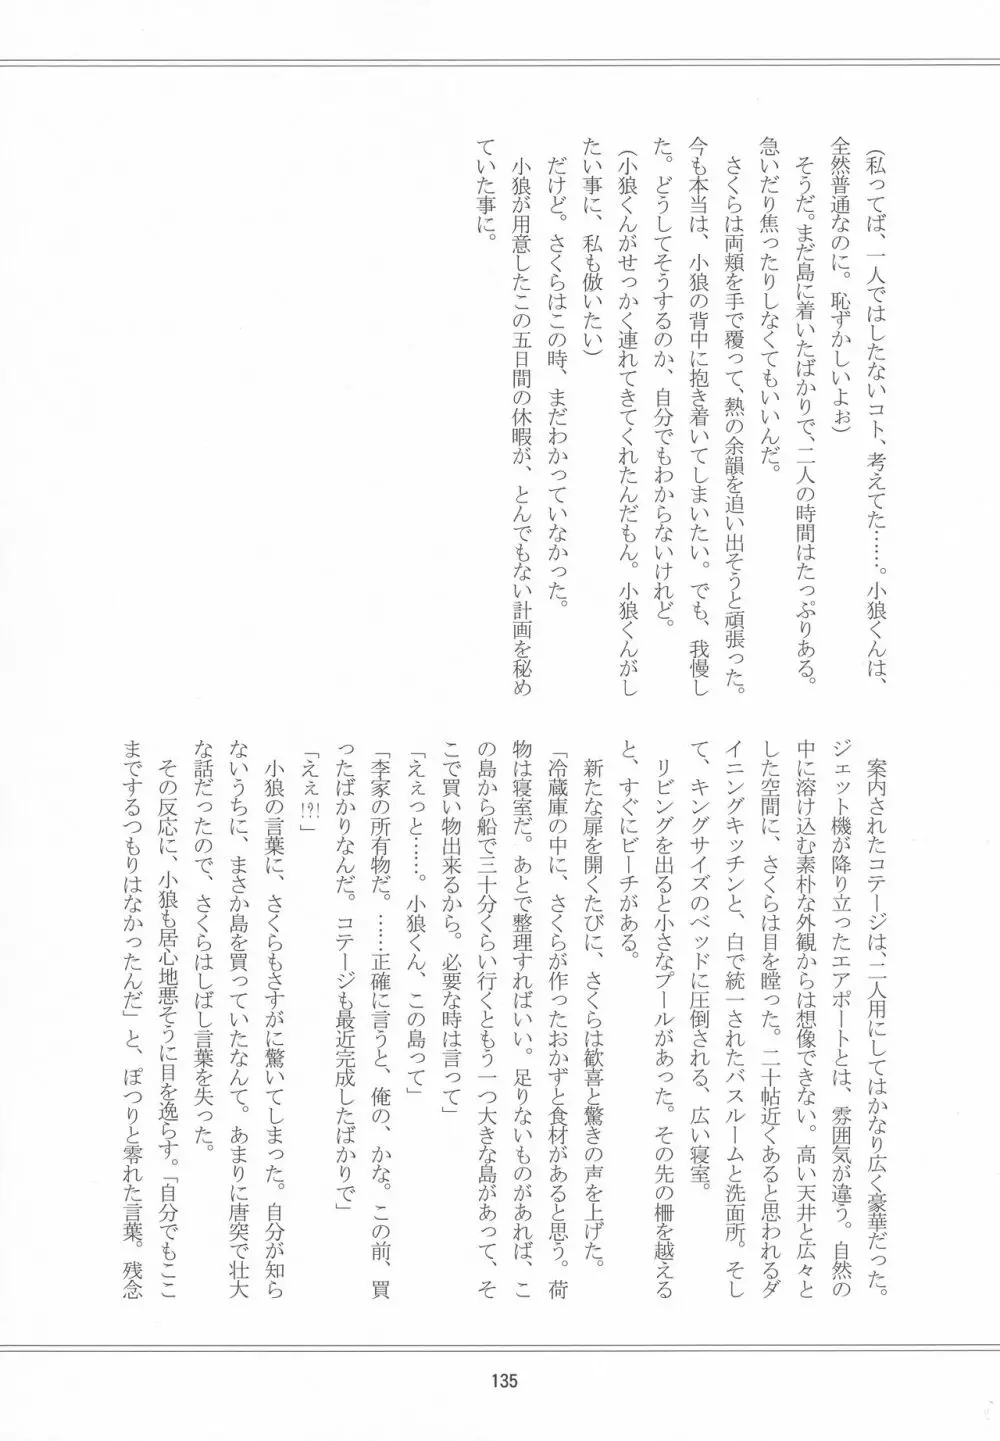 （私ってば、一人ではしたないコト、考えてた……。小狼くんは、
全然普通なのに。恥ずかしいよぉ）
そうだ。まだ島に着いたばかりで、二人の時間はたっぷりある。
急いだり焦ったりしなくてもいいんだ。
さくらは両頬を手で覆って、熱の余韻を追い出そうと頑張った。
今も本当は、小狼の背中に抱き着いてしまいたい。でも、我慢し
た。どうしてそうするのか、自分でもわからないけれど。
（小狼くんがせっかく連れてきてくれたんだもん。小狼くんがし
たい事に、私も倣いたい）
だけど。さくらはこの時、まだわかっていなかった。
小狼が用意したこの五日間の休暇が、とんでもない計画を秘め
ていた事に。
案内されたコテージは、二人用にしてはかなり広く豪華だった。
ジェット機が降り立ったエアポートとは、雰囲気が違う。自然の
中に溶け込む素朴な外観からは想像できない。高い天井と広々と
した空間に、さくらは目を瞠った。二十帖近くあると思われるダ
イニングキッチンと、白で統一されたバスルームと洗面所。そし
て、キングサイズのベッドに圧倒される、広い寝室。
リビングを出ると小さなプールがあった。その先の柵を越える
と、すぐにビーチがある。
新たな扉を開くたびに、さくらは歓喜と驚きの声を上げた。
「冷蔵庫の中に、さくらが作ったおかずと食材があると思う。荷
物は寝室だ。あとで整理すればいい。足りないものがあれば、こ
の島から船で三十分くらい行くともう一つ大きな島があって、そ
こで買い物出来るから。必要な時は言って」
「えぇっと……。小狼くん、この島って」
「李家の所有物だ。……正確に言うと、俺の、かな。この前、買
ったばかりなんだ。コテージも最近完成したばかりで」
「えぇ!?!」
小狼の言葉に、さくらもさすがに驚いてしまった。自分が知ら
ないうちに、まさか島を買っていたなんて。あまりに唐突で壮大
な話だったので、さくらはしばし言葉を失った。
その反応に、小狼も居心地悪そうに目を逸らす。「自分でもここ
までするつもりはなかったんだ」と、ぽつりと零れた言葉。残念
135